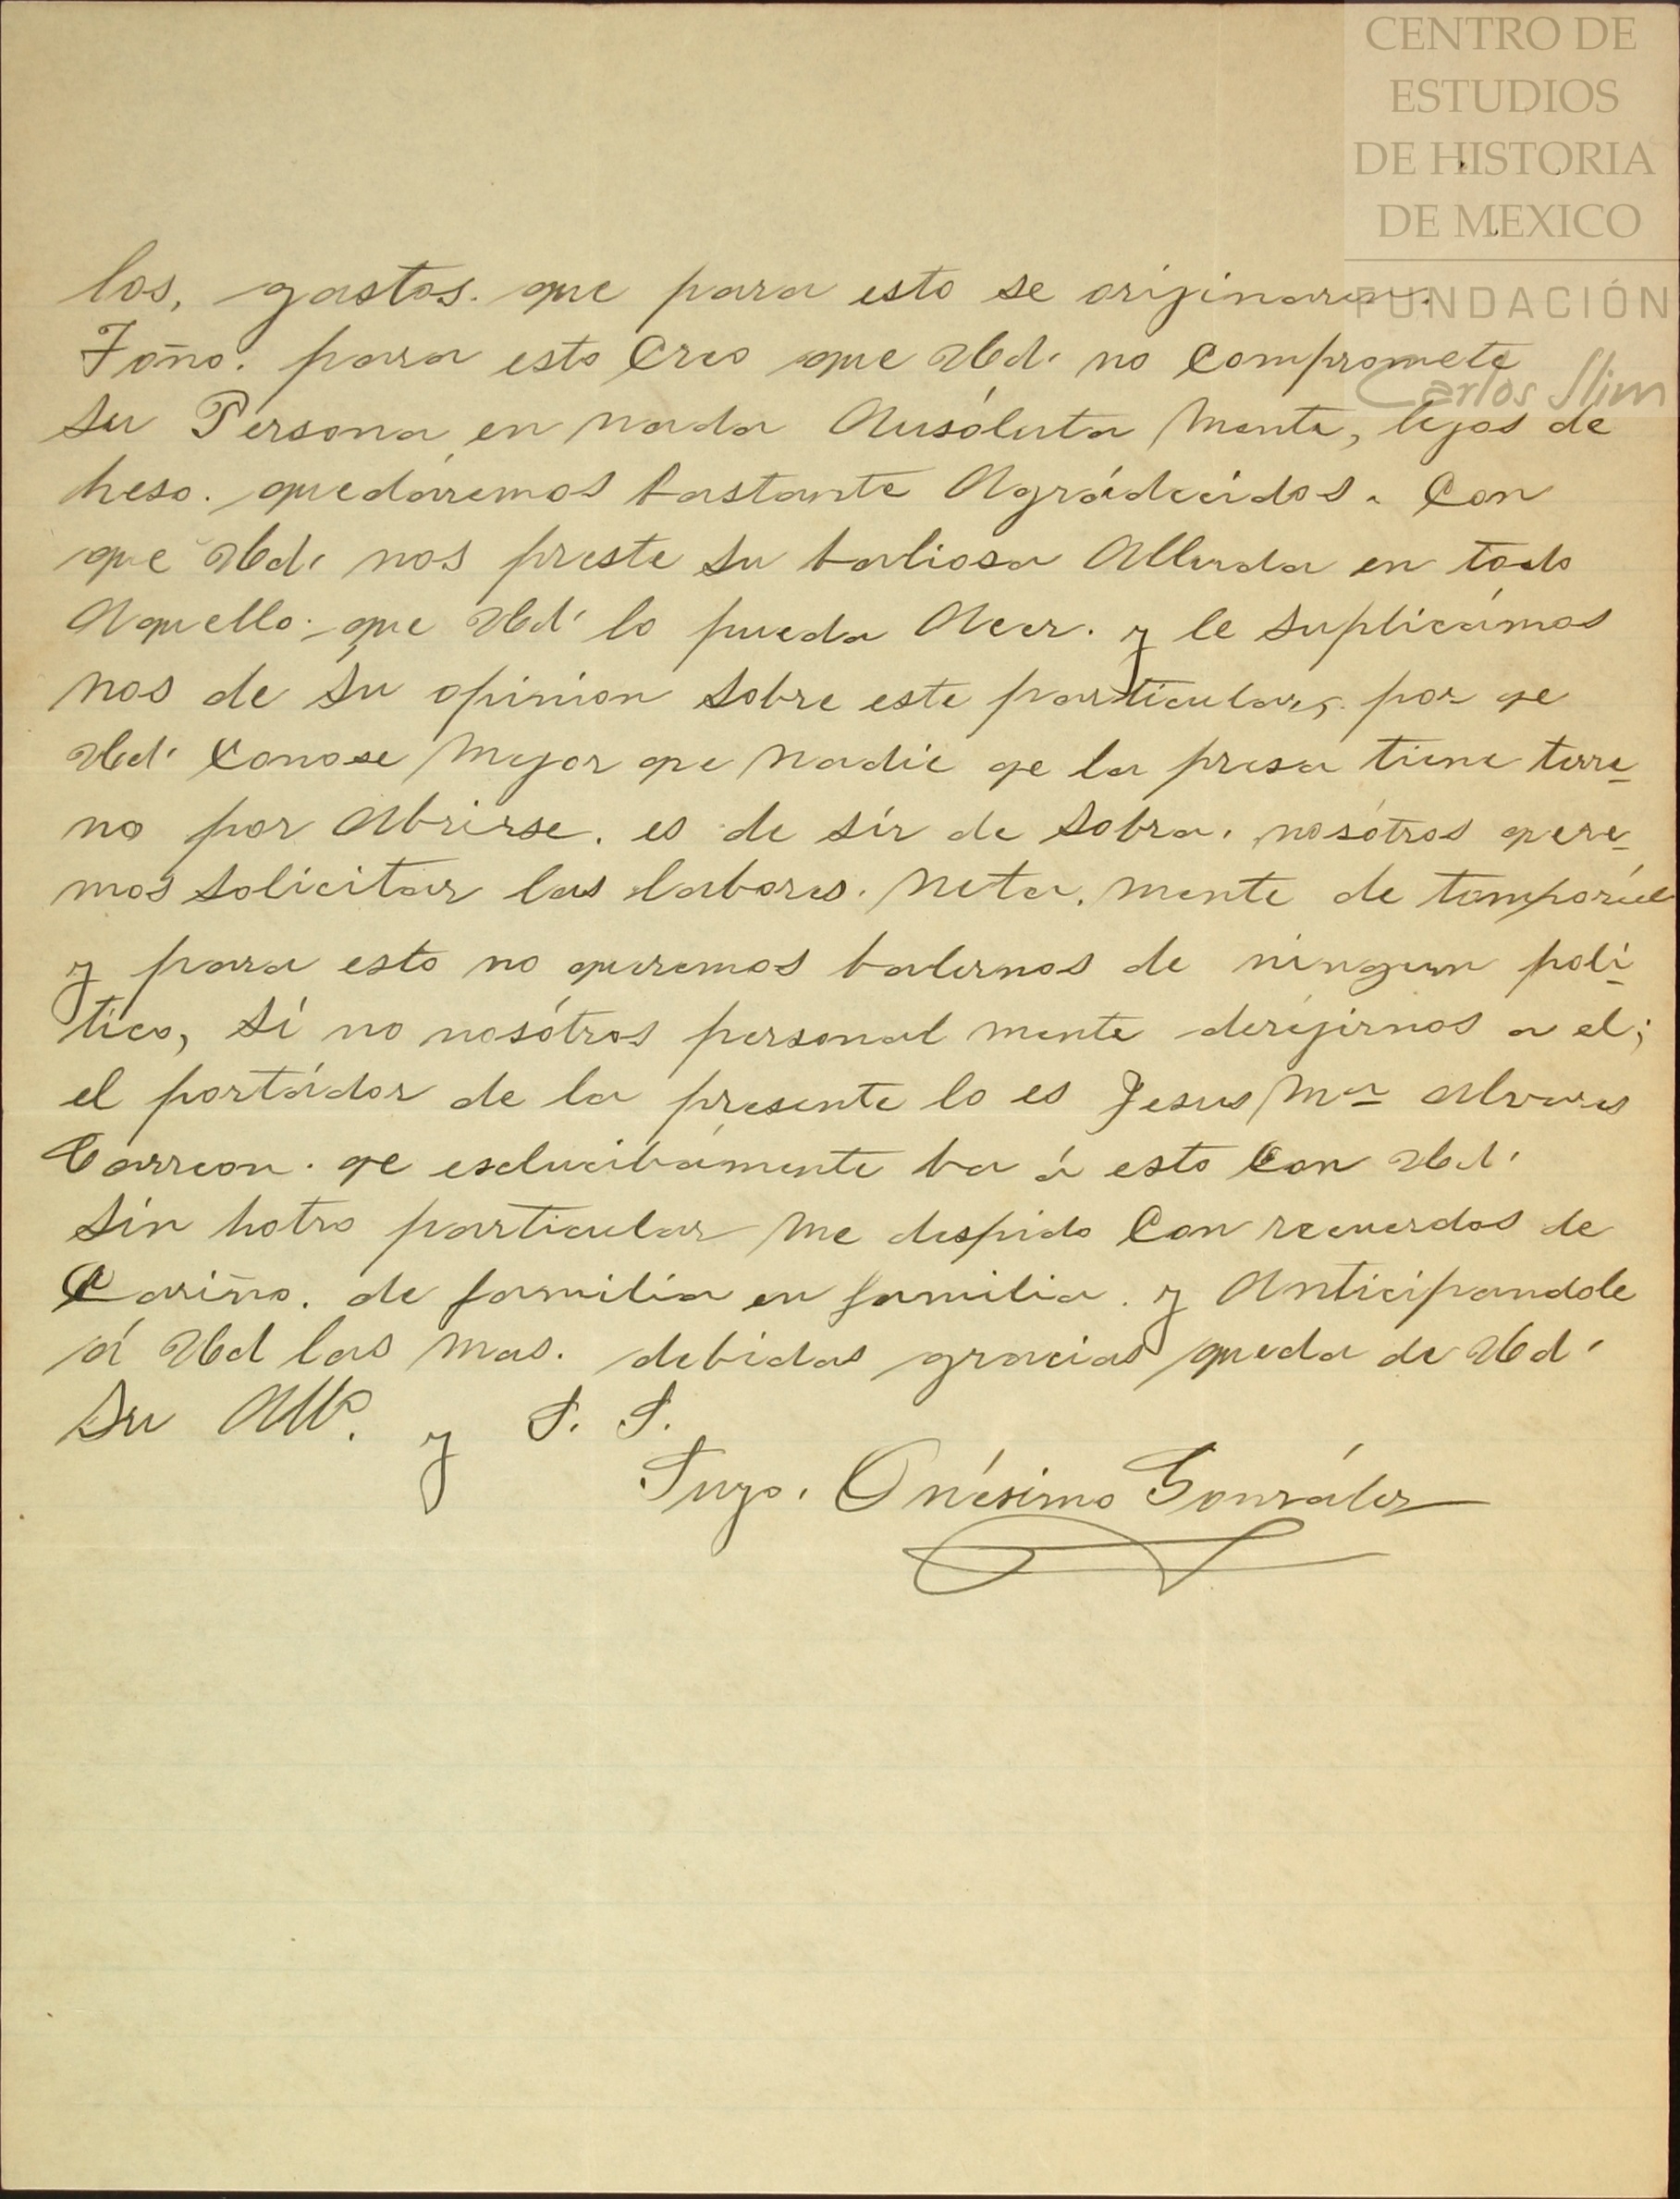 CENTRO DE
ESTUDIOS
DE HISTORIA
DE MEXICO
FUNDACIÓN
Carlos Slim
los, gastos. que para esto se orijinaren.
Toño. para esto Creo que Ud. no Compromete
su Persona en nada Ausóluta Mente, lejos de
heso. quedáremos bastante Agrádecidos. Con
que Ud. nos preste su baliosa Alluda en todo
Aquello. que Ud. lo pueda Acer. y le suplicámos
nos de su opinion sobre este particular, por qe
Ud. Conose Mejor qe Nadie qe la presa tiene terre
no por Abrirse. es de sír de sobra. nosótros quere
mos solicitar las labores. Neta. mente de temporál
y para esto no queremos balernos de ningun poli
tico, sí no nosótros personal mente derijirnos a el;
el portádor de la presente lo es Jesus Ma Alvares
Carreon. qe esclucibámente ba á esto Con Ud.
sin hotro particular Me despido Con recuerdos de
Cariño. de familia en familia. y Anticipandole
á Ud las Mas. debidas gracias queda de Ud.
su Affo. y S. S.
Suyo. Onésimo González